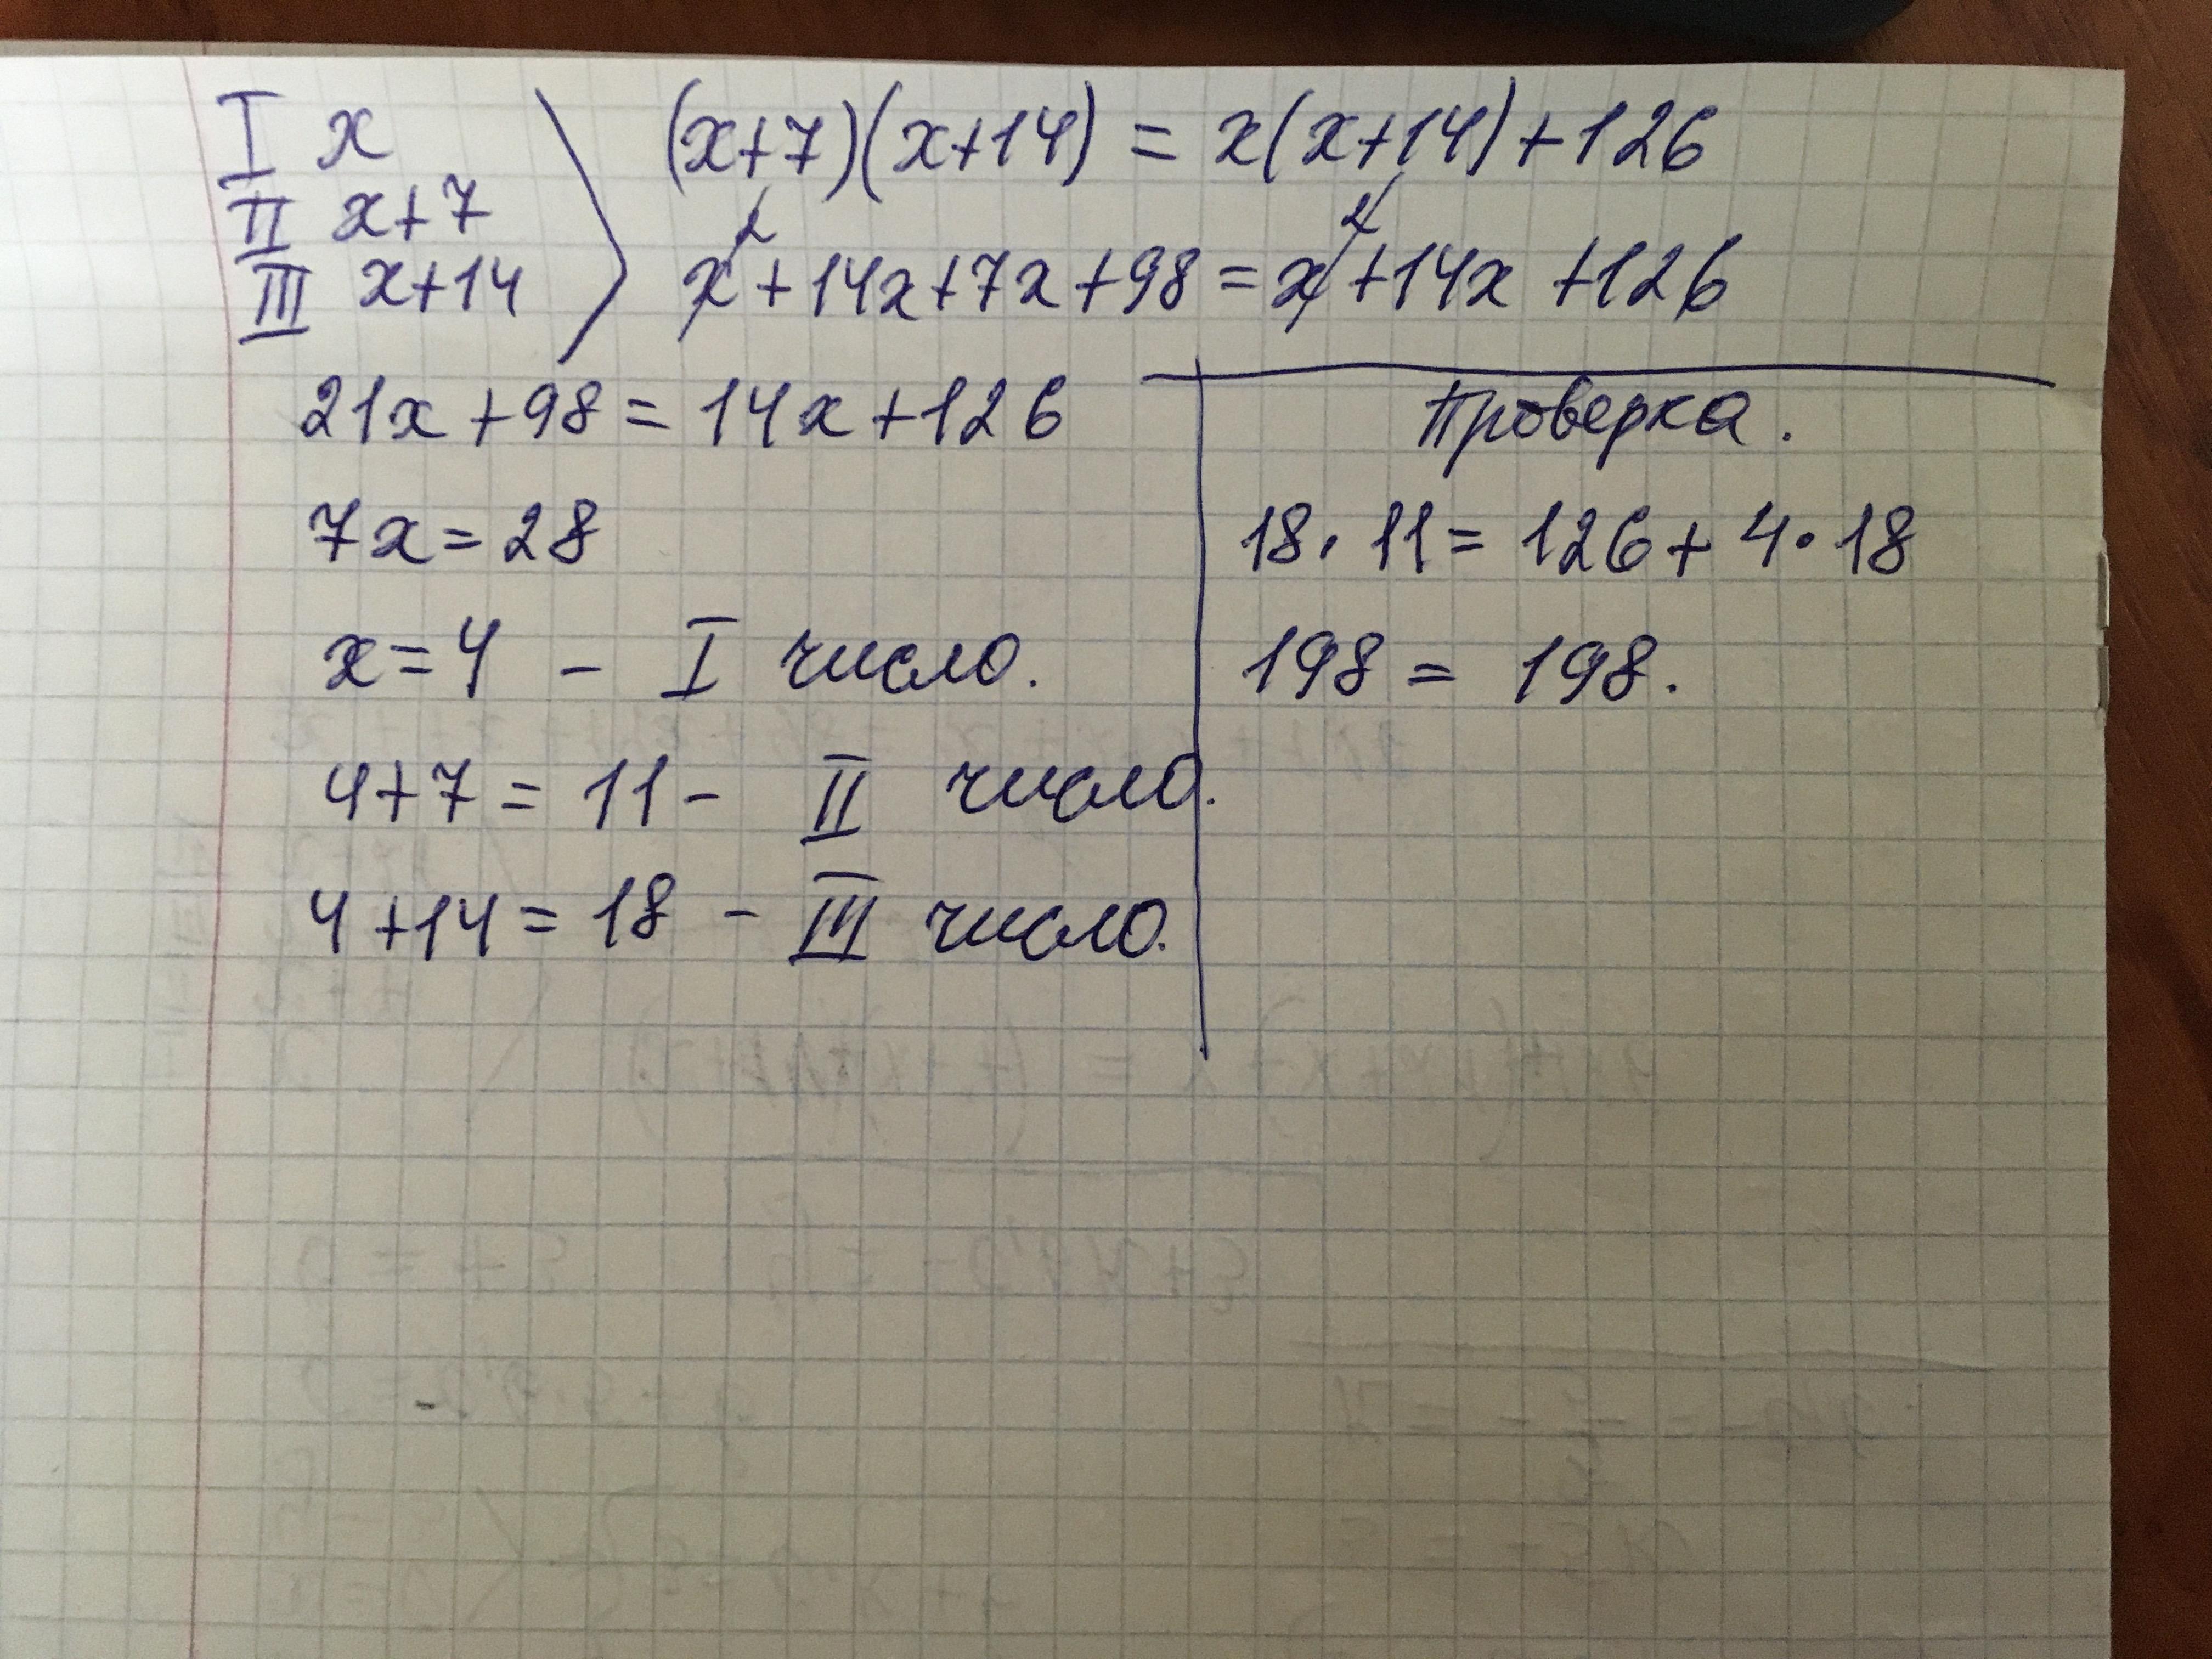 I x
II x+7
III x+14
(x+7)(x+14) = x(x+14)+126
x²+14x+7x+98 = x²+14x+126
21x+98 = 14x+126
7x = 28
x=4 - I число.
4+7 = 11 - II число.
4+14 = 18 - III число.
Проверка.
18·11 = 126+4·18
198 = 198.